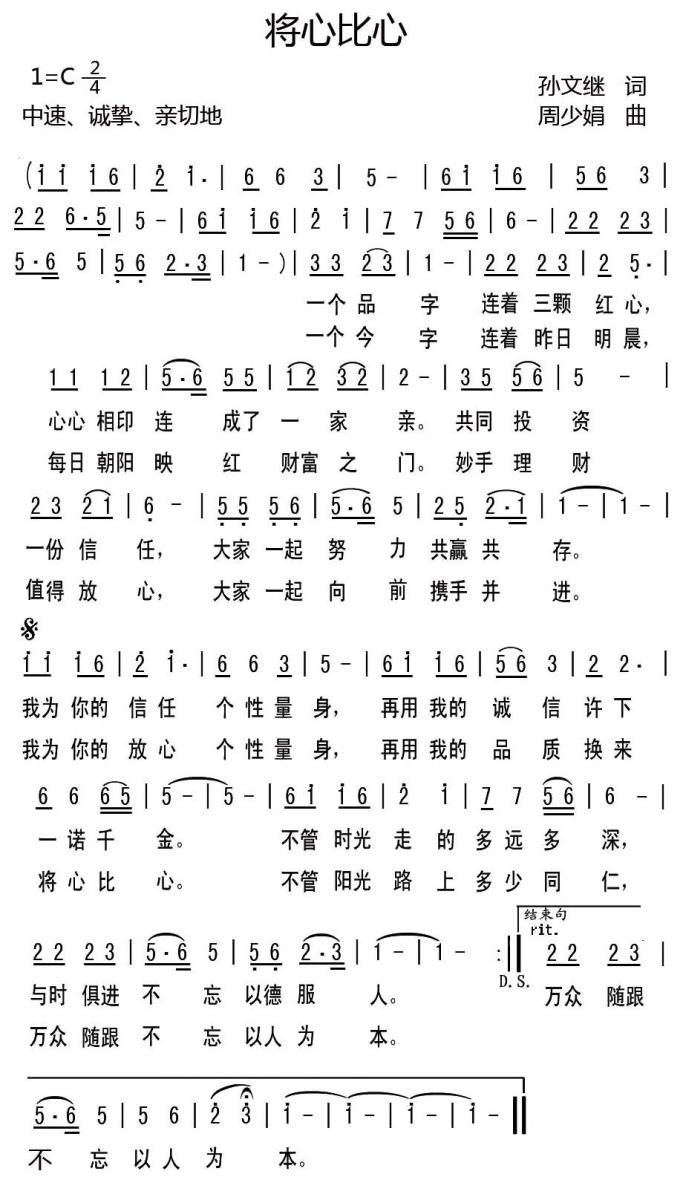 将心比心
1=C 2/4
孙文继 词
中速、诚挚、亲切地
周少娟 曲
(i i i 6 | 2 i· | 6 6 3 | 5 - | 6 i i 6 | 5 6 3 |
2 2 6·5 | 5 - | 6 i i 6 | 2 i | 7 7 5 6 | 6 - | 2 2 2 3 |
5·6 5 | 5 6 2·3 | 1 - )| 3 3 2 3 | 1 - | 2 2 2 3 | 2 5· |
一个 品 字 连着 三颗 红 心,
一个 今 字 连着 昨日 明 晨,
1 1 1 2 | 5·6 5 5 | 1 2 3 2 | 2 - | 3 5 5 6 | 5 - |
心心 相印 连 成了 一 家 亲。 共同 投 资
每日 朝阳 映 红 财富 之 门。 妙手 理 财
2 3 2 1 | 6 - | 5 5 5 6 | 5·6 5 | 2 5 2·1 | 1 - | 1 - |
一份 信 任, 大家 一起 努 力 共赢 共 存。
值得 放 心, 大家 一起 向 前 携手 并 进。
i i i 6 | 2 i· | 6 6 3 | 5 - | 6 i i 6 | 5 6 3 | 2 2· |
我为 你的 信 任 个 性 量 身, 再用 我的 诚 信 许 下
我为 你的 放 心 个 性 量 身, 再用 我的 品 质 换 来
6 6 6 5 | 5 - | 5 - | 6 i i 6 | 2 i | 7 7 5 6 | 6 - |
一 诺 千 金。 不管 时光 走 的 多 远 多 深,
将 心 比 心。 不管 阳光 路 上 多 少 同 仁,
结束句
rit.
2 2 2 3 | 5·6 5 | 5 6 2·3 | 1 - | 1 - :‖ 2 2 2 3 |
D.S.
与时 俱进 不 忘 以德 服 人。 万众 随跟
万众 随跟 不 忘 以人 为 本。
5·6 5 | 5 6 | 2 3 | i - | i - | i - | i - ‖
不 忘 以 人 为 本。